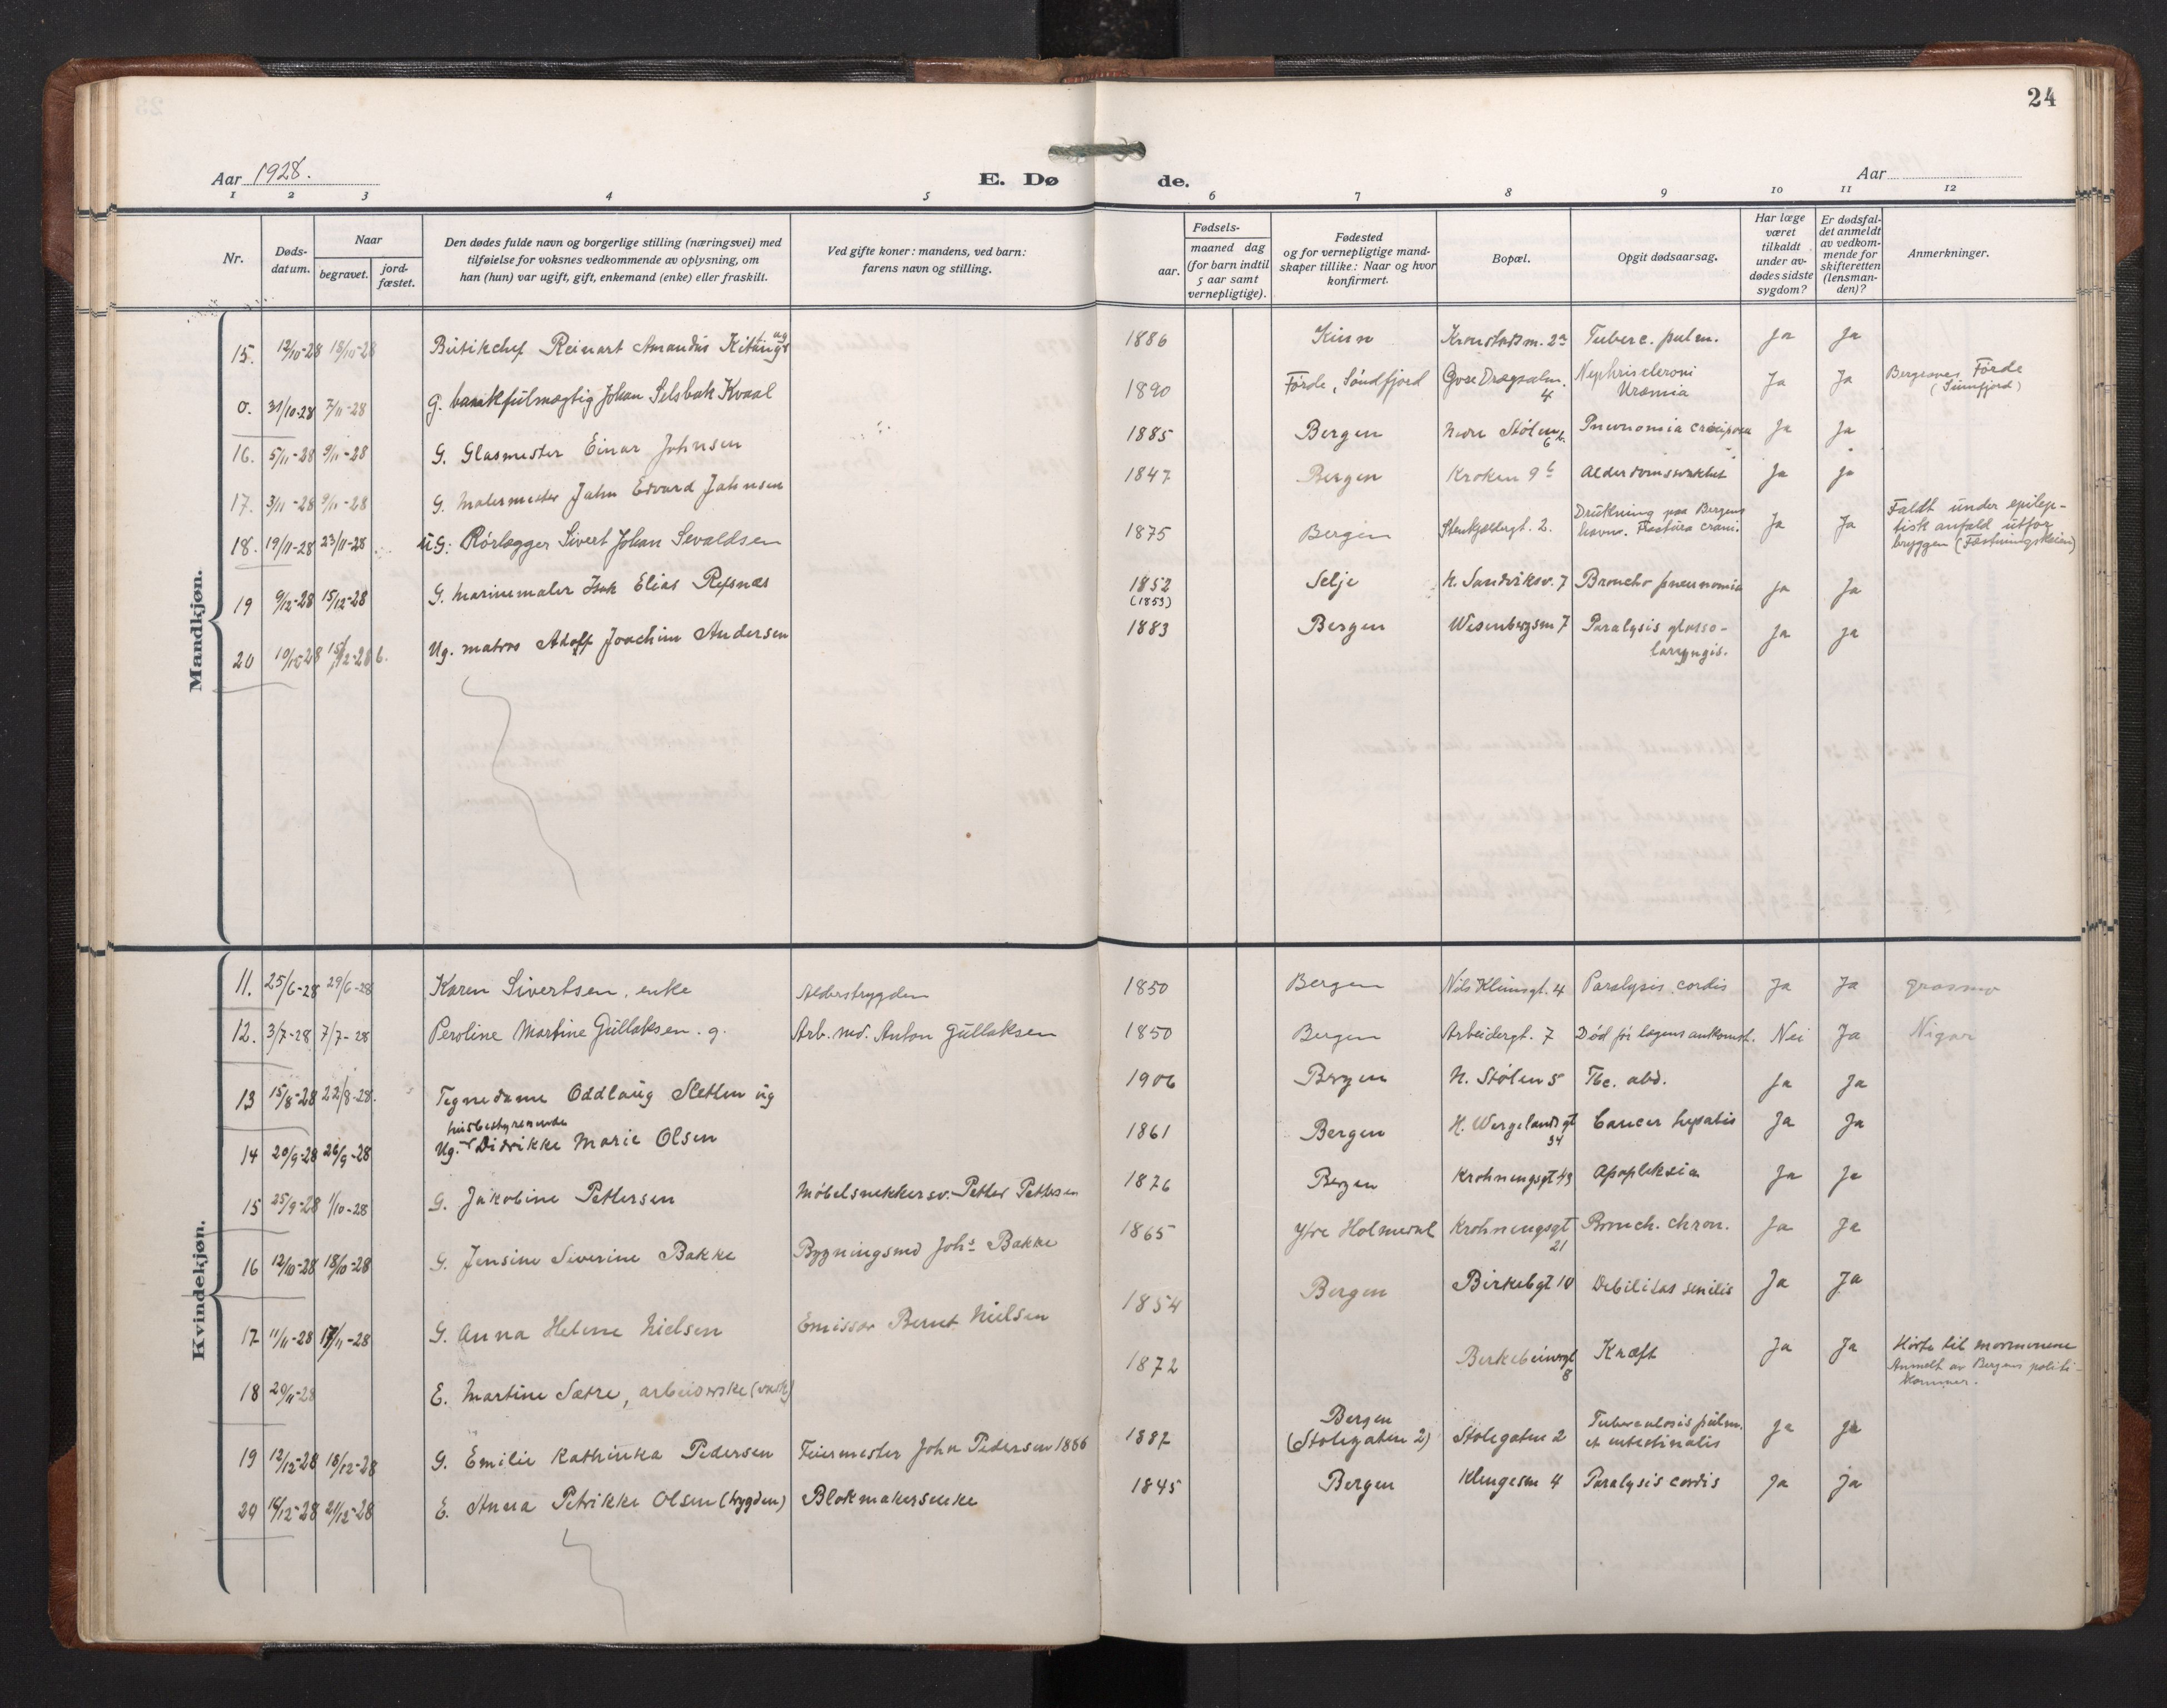 24
Aar 1928.
E. Dø
de.
Aar
1 2 3 4 5 6 7 8 9 10 11 12
Nr.
Døds-
datum.
Naar
begravet.
jord-
fæstet.
Den dødes fulde navn og borgerlige stilling (næringsvei) med
tilføielse for voksnes vedkommende av oplysning, om
han (hun) var ugift, gift, enkemand (enke) eller fraskilt.
Ved gifte koner: mandens, ved barn:
farens navn og stilling.
Fødsels-
aar.
maaned dag
(for barn indtil
5 aar samt
vernepligtige).
Fødested
og for vernepligtige mand-
skaper tillike: Naar og hvor
konfirmert.
Bopæl.
Opgit dødsaarsag.
Har læge
været
tilkaldt
under av-
dødes sidste
sygdom?
Er dødsfal-
det anmeldt
av vedkom-
mende for
skifteretten
(lensman-
den)?
Anmerkninger.
Mandkjøn.
15. 12/10-28 18/10-28 Butikchef Reinart Amandus 1886 Kinn Kronstadm. 2a Tuberc. pulm. Ja Ja
0. 31/10-28 7/11-28 G. bankfulmægtig Johan Selsbak Kvaal 1890 Förde, Söndfjord 4 Nephriscleroni Uræmia Ja Ja Förde
(Sunnfjord)
16. 5/11-28 9/11-28 G. Glasmester Einar Johnsen 1885 Bergen Nedre Stølen 6 Pneunomia Ja Ja
17. 3/11-28 9/11-28 G. Malermester Jahn Edvard Jahnsen 1847 Bergen Kroken 9b Alderdomssvakhet Ja Ja
18. 19/11-28 23/11-28 u G. Rörlægger Sivert Johan Sevaldsen 1875 Bergen 2. Drukning paa Bergens
havn. Fractura crani. Ja Ja Faldt under epilep-
tisk anfald utfor
bryggen (Fæstningskaien)
19 9/12-28 15/12-28 G. Marinemaler Isak Elias Refsnæs 1852
(1853) Selje N. Sandviksv. 7 Broncho pneunomia Ja Ja
20 10/12-28 15/12-28 b. Ug. matros Adolf Joachim Andersen 1883 Bergen Wesenbergsm 7 Paralysis glosso-
laryngis. Ja Ja
Kvindekjøn.
11. 25/6-28 29/6-28 Karen Sivertsen, enke Alderstrygden 1850 Bergen Nils Klimsgt. 4 Paralysis cordis Ja Ja
12. 3/7-28 7/7-28 Peroline Martine Gullaksen. g. Arb. md. Anton Gullaksen 1850 Bergen Arbeidergt. 7 Död för lægens ankomst. Nei Ja
13 15/8-28 22/8-28. Tegnedame Oddlaug Sletten ug 1906 Bergen N. Stølen 5 Tbc. abd. Ja Ja
husbestyrerinde
14 20/9-28 26/9-28 Ug. Didrikke Marie Olsen 1861 Bergen H. Wergelandsgt
34 Cancer hepatis Ja Ja
15 25/9-28 1/10-28 G. Jakobine Pettersen Møbelsnekkersv. Petter Pettersen 1876 Bergen Krohnengsgt 49 Apopleksia Ja Ja
16 12/10-28 18/10-28 G. Jensine Severine Bakke Bygningsmd Johs Bakke 1865 Ytre Holmedal Krohnengsgt
21 Bronch. chron. Ja Ja
17 11/11-28 17/11-28 G. Anna Helene Nielsen Emissær Bernt Nielsen 1854 Bergen Birkebgt 10 Debilitas senilis Ja Ja
18 20/11-28 E. Martine Sætre, 1872 Birkebeinergt
8 Kræft Ja Ja Hørte til mormonene
Anmeldt av Bergens politi-
kammer.
19 12/12-28 18/12-28 G. Emilie Kathinka Pedersen Feiermester John Pedersen 1886 1887 Bergen
(Stølegaten 2) Stølegaten 2 Tuberculosis pulm.
et intestinalis Ja Ja
20 14/12-28 21/12-28 E. Anna Petrikke Olsen (trygden) Blokmakersenke 1845 Bergen Klingesm 4 Paralysis cordis Ja Ja